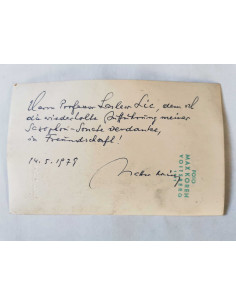 Herrn Professor Lic, dem ich
die wiederholte Aufführung meiner
Saxophon-Sonate verdanke,
in Freundschaft!
14.5.1979
FOTO
MAX KOREN
VOITSBERG